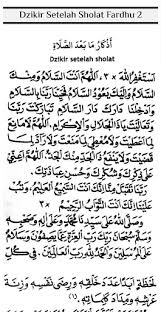 Dzikir Setelah Sholat Fardhu 2
أَذْكَارُ مَا بَعْدَ الصَّلَاةِ
Dzikir setelah sholat
أَسْتَغْفِرُ اللهَ ×٣، اَللّٰهُمَّ أَنْتَ السَّلَامُ وَمِنْكَ
السَّلَامُ وَإِلَيْكَ يَعُوْدُ السَّلَامُ فَحَيِّنَا رَبَّنَا بِالسَّلَامِ
وَأَدْخِلْنَا دَارَكَ دَارَ السَّلَامِ تَبَارَكْتَ رَبَّنَا
وَتَعَالَيْتَ يَاذَا الْجَلَالِ وَالْإِكْرَامِ، اَللّٰهُمَّ لَا مَانِعَ
لِمَا أَعْطَيْتَ وَلَا مُعْطِيَ لِمَا مَنَعْتَ وَلَا
يَنْفَعُ ذَا الْجَدِّ مِنْكَ الْجَدُّ، اَللّٰهُمَّ أَعِنِّيْ
عَلَى ذِكْرِكَ وَشُكْرِكَ وَحُسْنِ عِبَادَتِكَ
رَبَّنَا تَقَبَّلْ مِنَّا إِنَّكَ أَنْتَ السَّمِيْعُ الْعَلِيْمُ، وَتُبْ
عَلَيْنَا إِنَّكَ أَنْتَ التَّوَّابُ الرَّحِيْمُ ×٣
وَصَلَّى اللهُ عَلَى سَيِّدِنَا مُحَمَّدٍ وَعَلَى آلِهِ وَصَحْبِهِ
وَسَلَّمَ سُبْحَانَ رَبِّكَ رَبِّ الْعِزَّةِ عَمَّا يَصِفُوْنَ وَسَلَامٌ
لَحْظَةٍ أَبَدًا عَدَدَ خَلْقِهِ وَرِضَى نَفْسِهِ وَزِنَةَ
عَرْشِهِ وَمِدَادَ كَلِمَاتِهِ. (١)